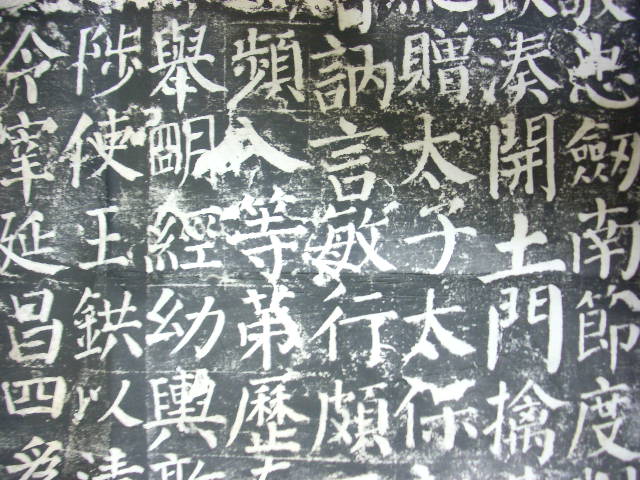 敬忠劒南節度判
欽湊開土門擒
贈太子太保
曾訥言敏行頗
頻入等第歷左
舉明經幼輿敦
陟使王鉷以清
令宰延昌四為